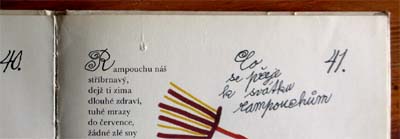 40.
Rampouchu náš
stříbrnavý,
dejž ti zima
dlouhé zdraví,
tuhé mrazy
do července,
žádné zlé sny
Co
se přeje
k svátku
rampouchům
41.